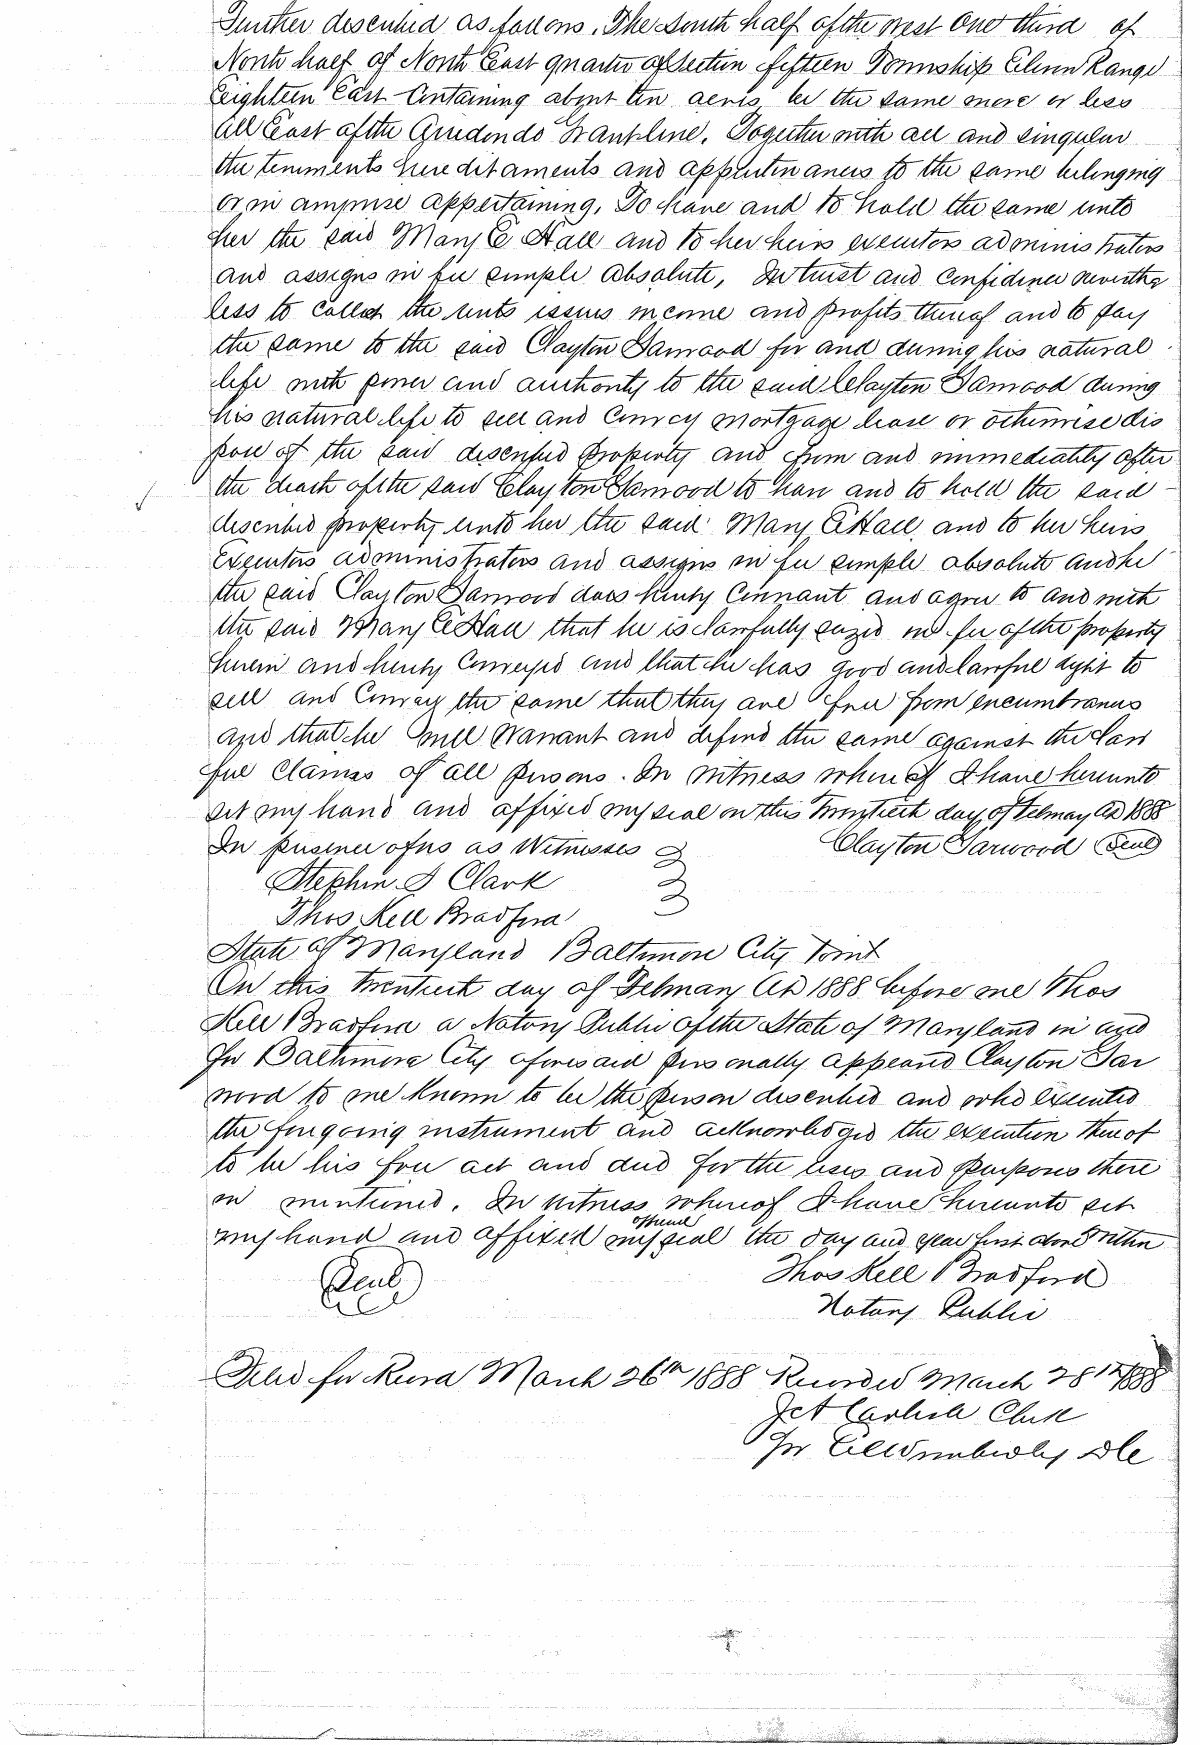 Further described as follows. The South half of the West One third of
North half of North East quarter of Section fifteen Township Eleven Range
Eighteen East Containing about ten acres be the same more or less
All East of the Arredondo Grant line. Together with all and singular
the tenements hereditaments and appurtenances to the same belonging
or in anywise appertaining. To have and to hold the same unto
her the said Mary E Hall and to her heirs executors administrators
and assigns in fee simple absolute, In trust and confidence neverthe
less to collect the rents issues income and profits thereof and to pay
the same to the said Clayton Garwood for and during his natural
life with power and authority to the said Clayton Garwood during
his natural life to sell and Convey mortgage lease or otherwise dis
pose of the said described property and from and immediately after
the death of the said Clayton Garwood to have and to hold the said
described property unto her the said Mary E Hall and to her heirs
Executors administrators and assigns in fee simple absolute and he
the said Clayton Garwood does hereby Covenant and agree to and with
the said Mary E Hall that he is lawfully seized in fee of the property
herein and hereby Conveyed and that he has good and lawful right to
sell and Convey the same that they are free from encumbrances
and that he will Warrant and defend the same against the law
ful Claims of all persons. In witness whereof I have hereunto
set my hand and affixed my seal on this twentieth day of February AD 1888
In presence of us as Witnesses Clayton Garwood Seal
Stephen J Clark
Thos Kell Bradford
State of Maryland Baltimore City to wit
On this twentieth day of February AD 1888 before me Thos
Kell Bradford a Notary Public of the State of Maryland in and
for Baltimore City aforesaid personally appeared Clayton Gar
wood to me known to be the person described and who executed
the foregoing instrument and acknowledged the execution thereof
to be his free act and deed for the uses and purposes there
in mentioned. In witness whereof I have hereunto set
my hand and affixed my official seal the day and year first above written
Seal Thos Kell Bradford
Notary Public
Filed for Record March 26th 1888 Recorded March 28th 1888
Clerk